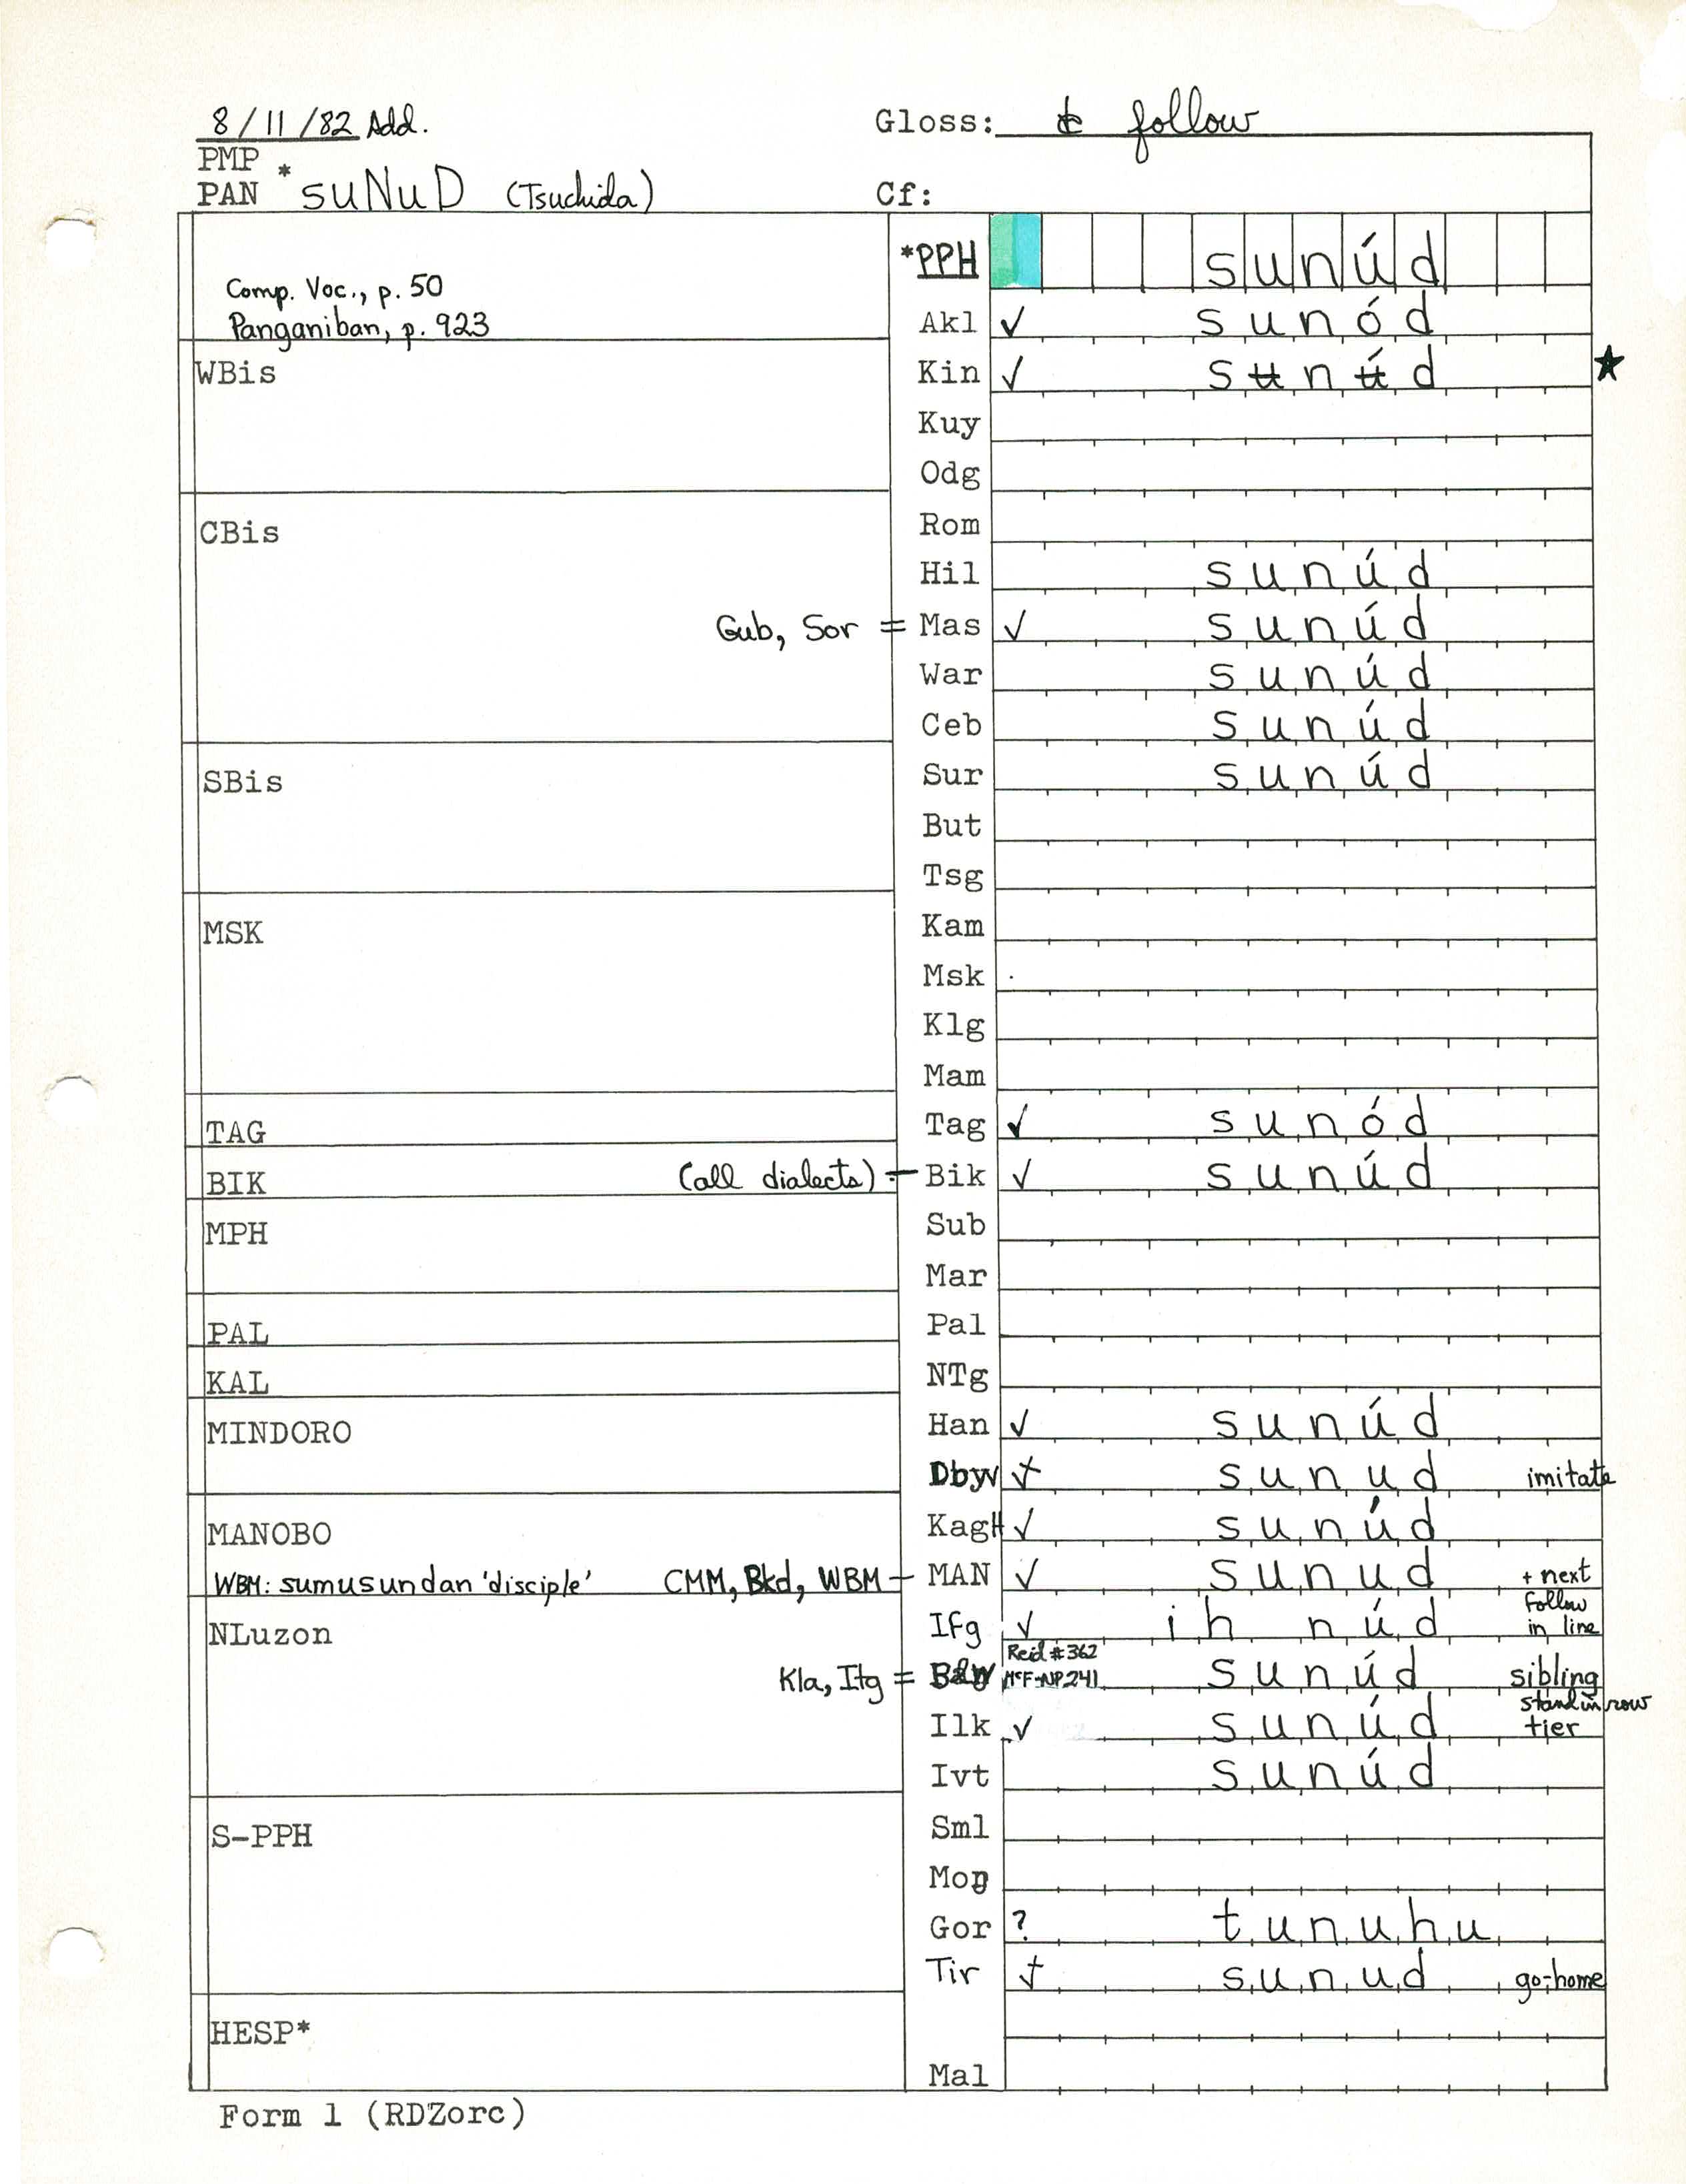 8/11/82 Add.
Gloss: to follow
PMP
PAN *suNuD (Tsuchida)
Cf:
*PPH sunúd
Comp. Voc., p. 50
Panganiban, p. 923
Akl ✓ sunód
WBis
Kin ✓ sʉnʉ́d ★
Kuy
Odg
CBis
Rom
Hil sunúd
Gub, Sor = Mas ✓ sunúd
War sunúd
Ceb sunúd
SBis
Sur sunúd
But
Tsg
MSK
Kam
Msk
Klg
Mam
TAG
Tag ✓ sunód
BIK
(all dialects) - Bik ✓ sunúd
MPH
Sub
Mar
PAL
Pal
KAL
NTg
MINDORO
Han ✓ sunúd
Dbyw sunud imitate
MANOBO
KagH ✓ sunúd
WBM: sumusundan 'disciple' CMM, Bkd, WBM - MAN ✓ sunud + next
NLuzon
Ifg ✓ ih núd follow in line
Kla, Itg = Reid #362 McF-NP.241 sunúd sibling
Ilk ✓ sunúd stand in row tier
Ivt sunúd
S-PPH
Sml
Moŋ
Gor ? tunuhu
Tir sunud go-home
HESP*
Mal
Form 1 (RDZorc)